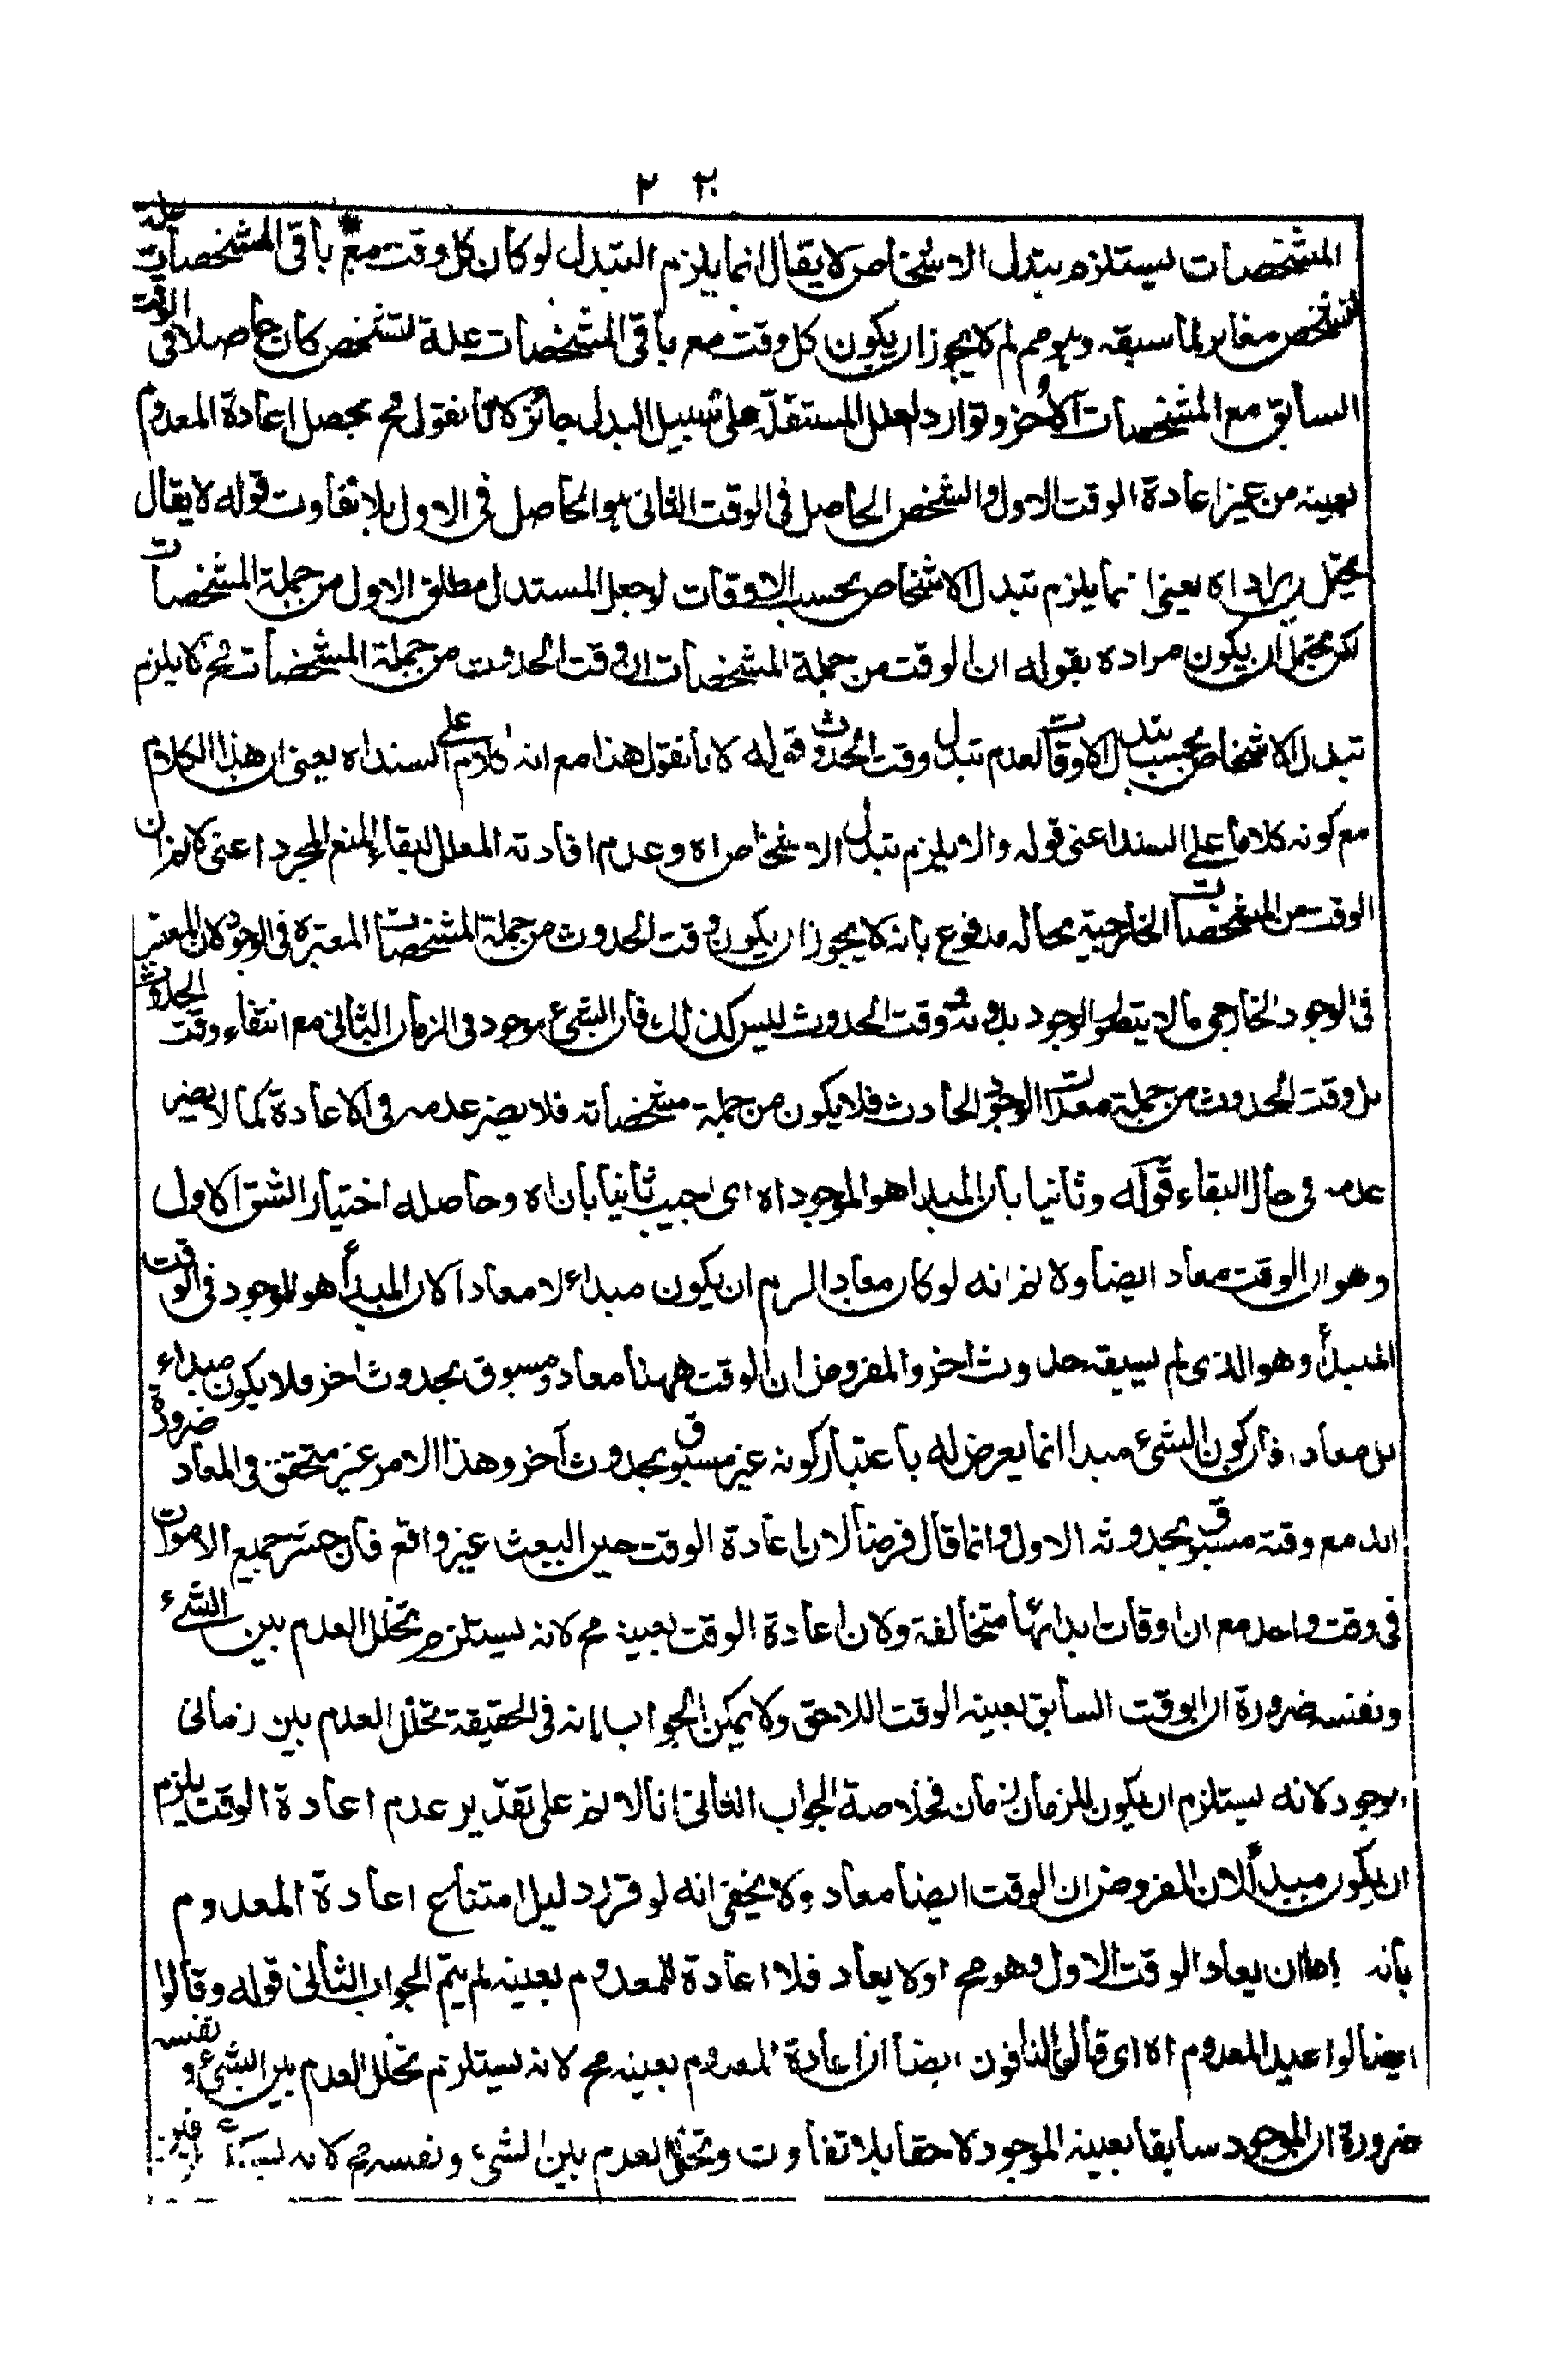 ٢٠ ٢
المشخصات يستلزم تبدل الاشخاص لا يقال انما يلزم التبدل لو كان كل وقت مع باقى المشخصات علة
لتشخص مغاير لما سبقه وهو مم لم لا يجوز ان يكون كل وقت مع باقى المشخصات علة لتشخص كان حاصلا فى الوقت
السابق مع المشخصات الأخر وتوارد العلل المستقلة على سبيل البدل جائز لانا نقول فح يحصل اعادة المعدوم
بعينه من غير اعادة الوقت الاول والشخص الحاصل فى الوقت الثانى هو الحاصل فى الاول بلا تفاوت قوله لا يقال
يحتمل ان يراد اه يعنى انما يلزم تبدل الاشخاص بحسب الاوقات لو جعل المستدل مطلق الاول من جملة المشخصات
لكن يحتمل ان يكون مراده بقوله ان الوقت من جملة المشخصات ان وقت الحدوث من جملة المشخصات فح لا يلزم
تبدل الاشخاص بحسب تبدل الاوقات لعدم تبدل وقت الحدوث قوله لانا نقول هذا مع انه كلام على السند اه يعنى ان هذا الكلام
مع كونه كلاما على السند اعنى قوله والا يلزم تبدل الاشخاص اه وعدم افادته المعلل لبقاء المنع المجرد اعنى لا نم ان
الوقت من المشخصات الخارجية بحاله مدفوع بانه لا يجوز ان يكون وقت الحدوث من جملة المشخصات المعتبرة فى الوجود لان المعتبر
فى الوجود الخارجى ما لا يتصور الوجود بدونه ووقت الحدوث ليس كذلك فان الشئ موجود فى الزمان الثانى مع انتفاء وقت الحدوث
بل وقت الحدوث من جملة معدات الوجود الحادث فلا يكون من جملة مشخصاته فلا يضر عدمه فى الاعادة كما لا يضر
عدمه فى حال البقاء قوله وثانيا بان المبدا هو الموجود اه اى اجيب ثانيا بان اه وحاصله اختيار الشق الاول
وهو ان الوقت معاد ايضا ولا نم انه لو كان معادا لزم ان يكون مبداء لا معادا لان المبدأ هو الموجود فى الوقت
المبدأ وهو الذى لم يسبقه حدوث اخر والمفروض ان الوقت ههنا معاد ومسبوق بحدوث اخر فلا يكون مبداء
بل معاد، فان كون الشئ مبدا انما يعرض له باعتبار كونه غير مسبوق بحدوث آخر وهذا الامر غير متحقق فى المعاد ضرورة
انه مع وقته مسبوق بحدوثه الاول وانما قال فرضا لان اعادة الوقت حين البعث غير واقع فان حشر جميع الاموات
فى وقت واحد مع ان اوقات ابدائها متخالفة ولان اعادة الوقت بعينه مح لانه يستلزم تخلل العدم بين الشئ
ونفسه ضرورة ان الوقت السابق بعينه الوقت اللاحق ولا يمكن الجواب بانه فى الحقيقة تخلل العدم بين زمانى
الوجود لانه يستلزم ان يكون للزمان زمان فخلاصة الجواب الثانى انا لا نم على تقدير عدم اعادة الوقت يلزم
ان يكون مبدأ لان المفروض ان الوقت ايضا معاد ولا يخفى انه لو قرر دليل امتناع اعادة المعدوم
بانه إما ان يعاد الوقت الاول وهو مح او لا يعاد فلا اعادة للمعدوم بعينه لم يتم الجواب الثانى قوله وقالوا
ايضا لو اعيد المعدوم اه اى قال النافون ايضا ان اعادة المعدوم بعينه مح لانه يستلزم تخلل العدم بين الشئ ونفسه
ضرورة ان الموجود سابقا بعينه الموجود لاحقا بلا تفاوت وتخلل العدم بين الشئ ونفسه مح لانه